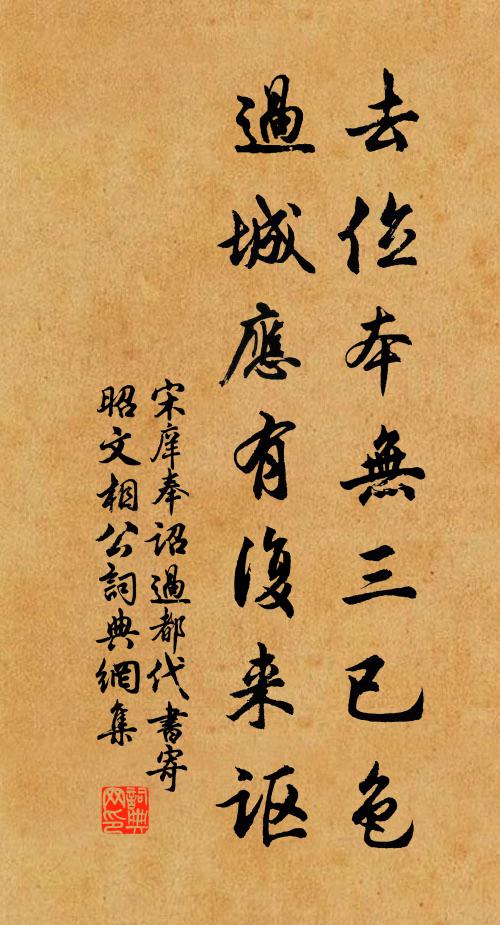 去位本無三已色
過城應有復来謳
宋庠奉詔過都代書寄
昭文相公詞典網集